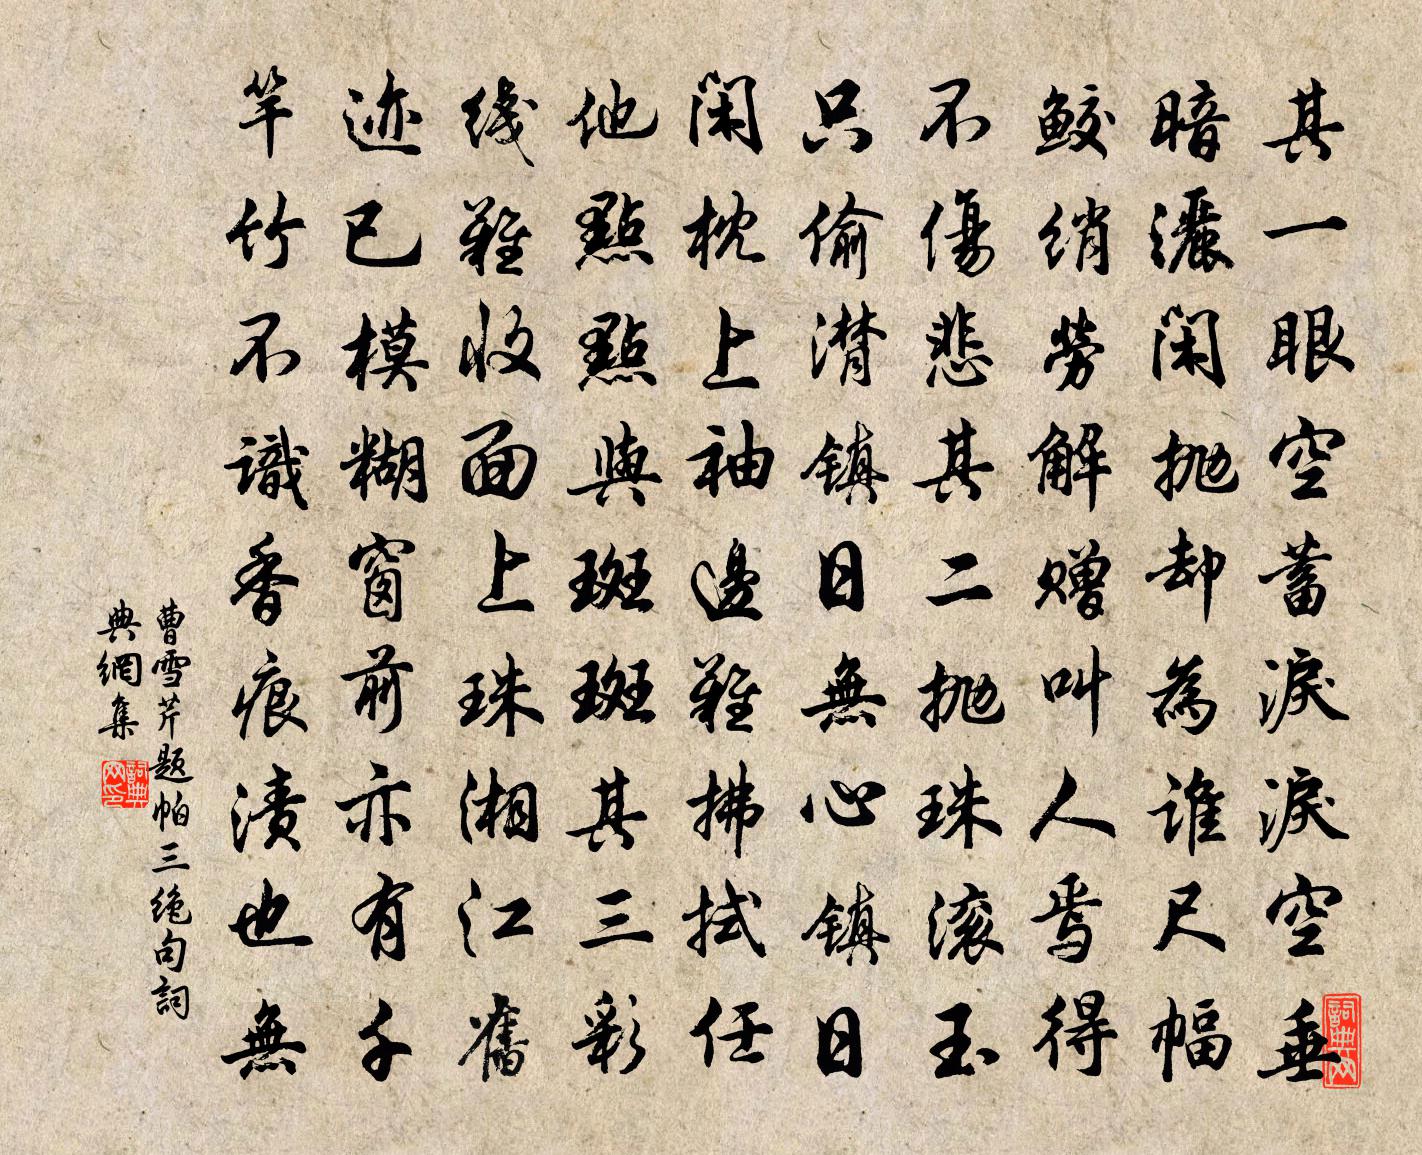 其一眼空蓄淚淚空垂
暗灑閑抛却為誰尺幅
鮫綃勞解赠叫人焉得
不傷悲其二抛珠滚玉
只偷潸鎮日無心鎮日
閑枕上袖邊難拂拭任
他點點與斑斑其三彩
线難收面上珠湘江舊
迹已模糊窗前亦有千
竿竹不識香痕漬也無
曹雪芹题帕三绝句詞
典網集
詞典网
詞典网印